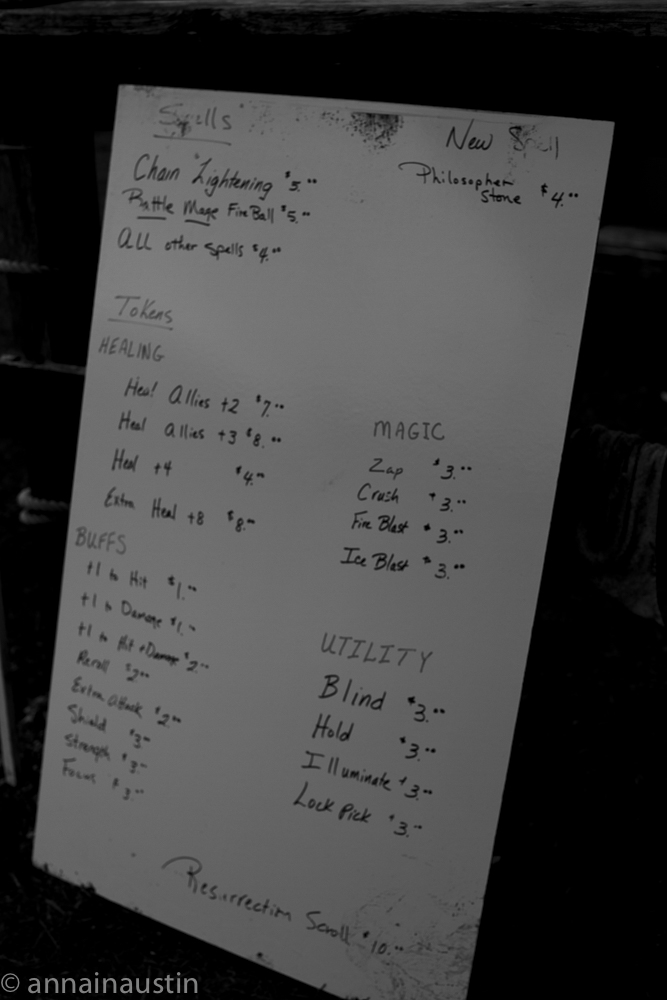 Spells
Chain Lightening $5.00
Battle Mage Fire Ball $5.00
All other spells $4.00
New Spell
Philosopher
Stone $4.00
Tokens
HEALING
Heal Allies +2 $7.00
Heal Allies +3 $8.00
Heal +4 $4.00
Extra Heal +8 $8.00
BUFFS
+1 to Hit $1.00
+1 to Damage $1.00
+1 to Hit + Damage $2.00
Reroll $2.00
Extra Attack $2.00
Shield $3.00
Strength $3.00
Focus $3.00
MAGIC
Zap $3.00
Crush $3.00
Fire Blast $3.00
Ice Blast $3.00
UTILITY
Blind $3.00
Hold $3.00
Illuminate $3.00
Lock Pick $3.00
Resurrection Scroll $10.00
© annainaustin